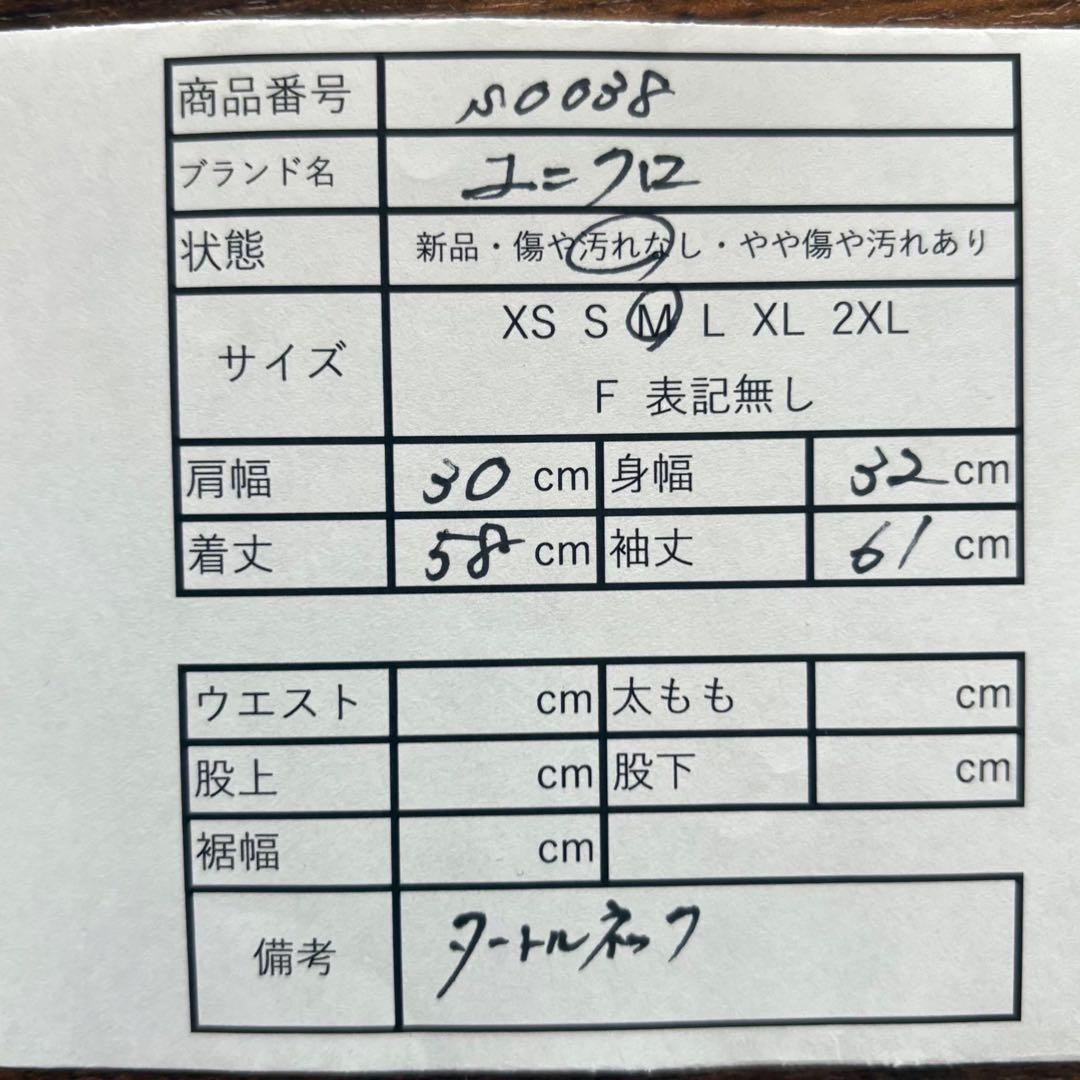 商品番号 S0038
ブランド名 ユニクロ
状態 新品・傷や汚れなし・やや傷や汚れあり
サイズ XS S M L XL 2XL
F 表記無し
肩幅 30 cm 身幅 32 cm
着丈 58 cm 袖丈 61 cm
ウエスト cm 太もも cm
股上 cm 股下 cm
裾幅 cm
備考 タートルネック